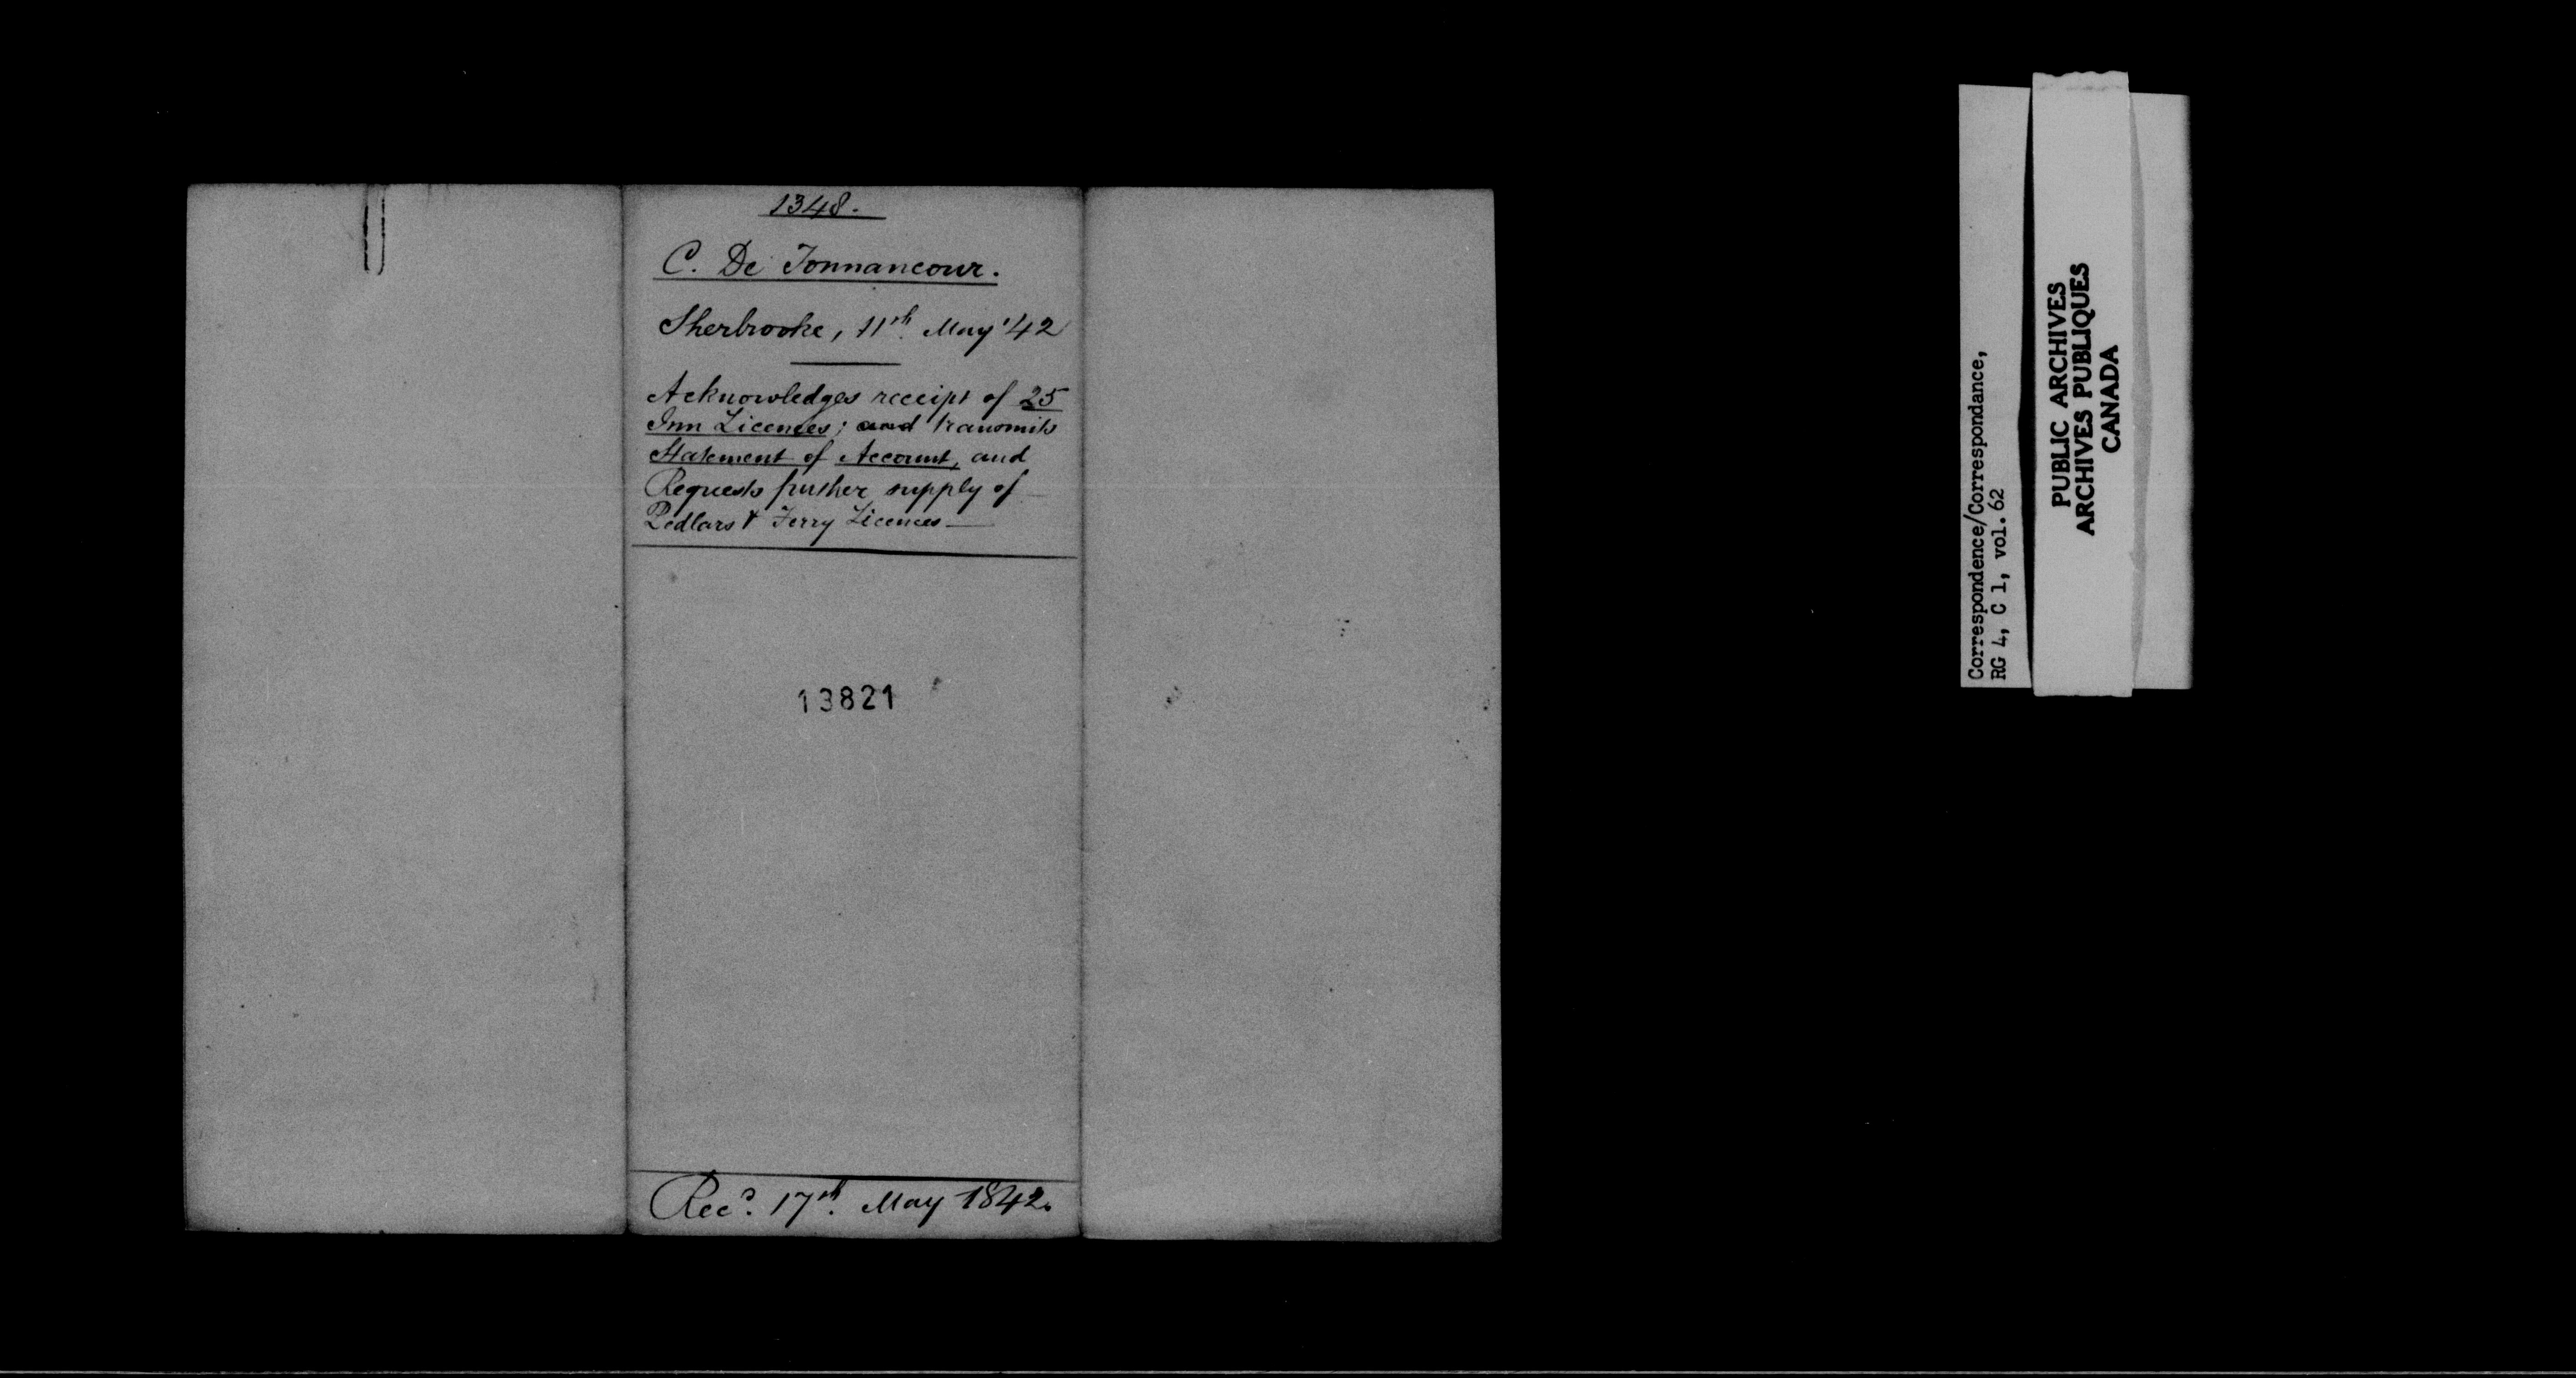 1348.
C. De Tonnancour.
Sherbrooke, 11th May '42
Acknowledges receipt of 25
Inn Licences; and transmits
Statement of Account, and
Requests further supply of
Pedlars & Ferry Licences—
13821
Recd. 17th. May 1842.
Correspondence/Correspondance,
RG 4, C 1, vol. 62
PUBLIC ARCHIVES
ARCHIVES PUBLIQUES
CANADA